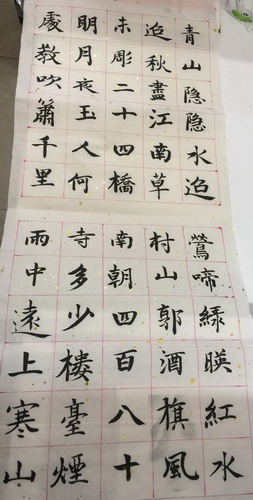 青山隐隐水迢
迢秋盡江南草
未彫二十四橋
明月夜玉人何
處教吹簫千里
鶯啼緑暎紅水
村山郭酒旗風
南朝四百八十
寺多少楼臺煙
雨中遠上寒山